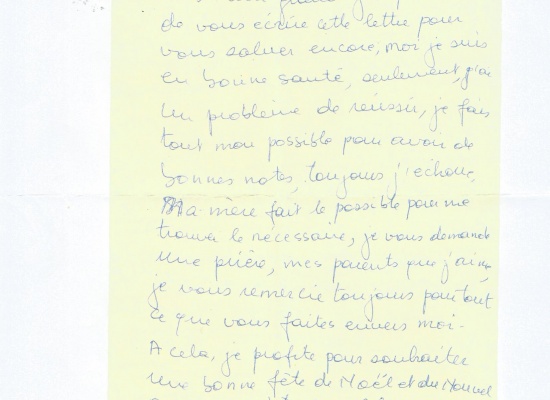 de vous écrire cette lettre pour
vous saluer encore, moi je suis
en bonne santé, seulement, j'ai
un problème de réussir, je fais
tout mon possible pour avoir de
bonnes notes, toujours j'échoue,
Ma mère fait le possible pour me
trouver le nécessaire, je vous demande
une prière, mes parents que j'aime,
je vous remercie toujours pour tout
ce que vous faites envers moi.
A cela, je profite pour souhaiter
une bonne fête de Noël et du Nouvel